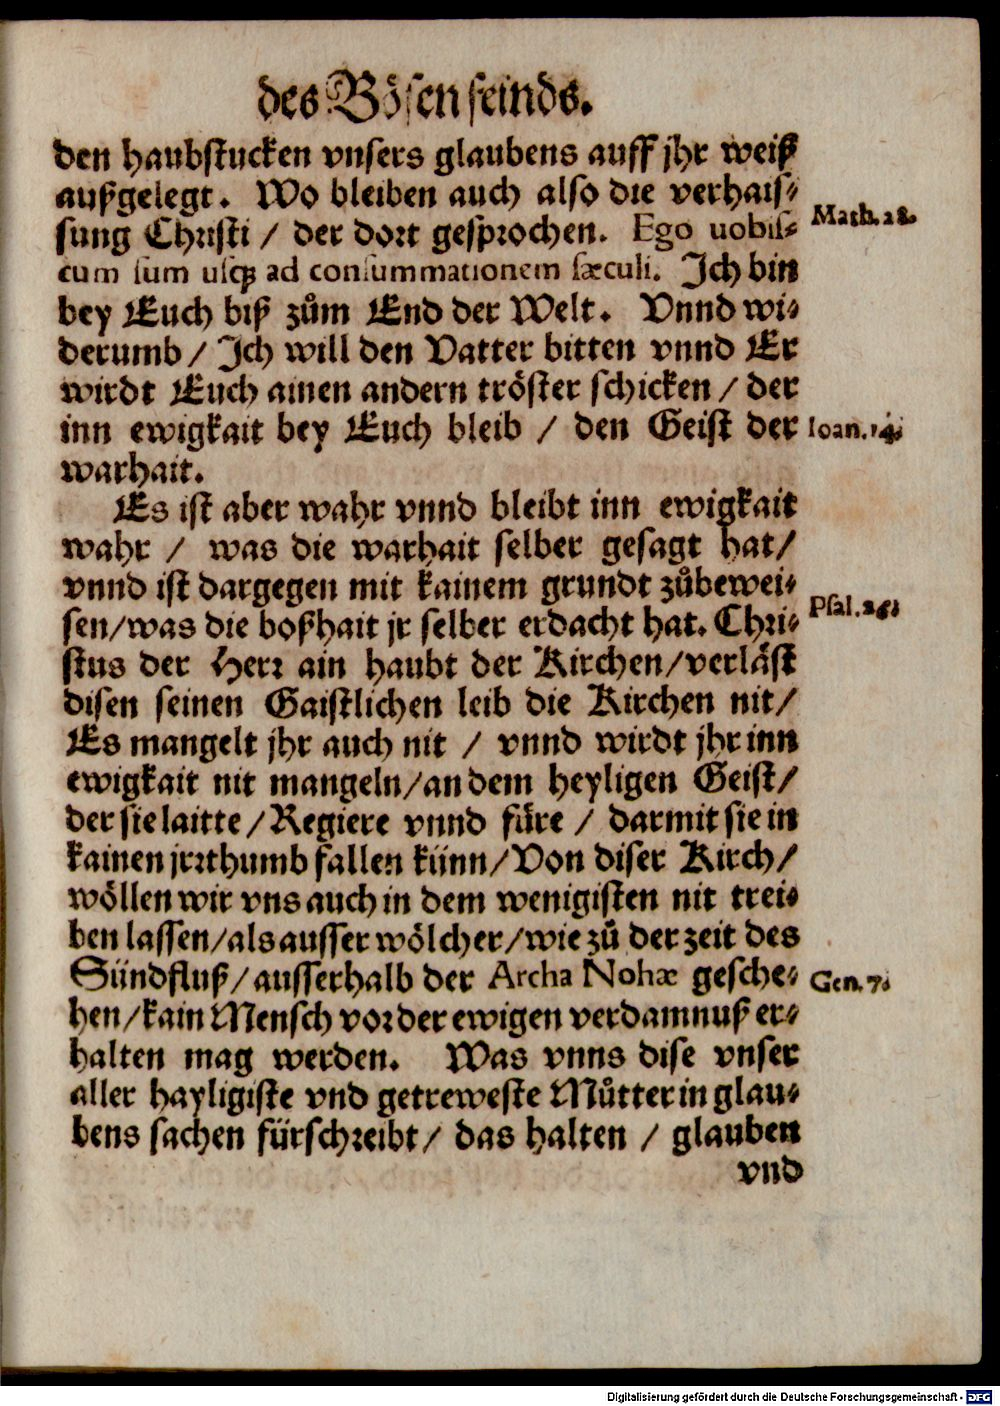 des Bösen feinds.
den haubstucken vnsers glaubens auff jhr weiß
außgelegt. Wo bleiben auch also die verhais⸗
sung Christi / der dort gesprochen. Ego uobis⸗
Math. 28.
cum sum usqꝫ ad consummationem sæculi. Ich bin
bey Euch biß zům End der Welt. Vnnd wi⸗
derumb / Ich will den Vatter bitten vnnd Er
wirdt Euch ainen andern tröster schicken / der
inn ewigkait bey Euch bleib / den Geist der
Ioan. 14.
warhait.
Es ist aber wahr vnnd bleibt inn ewigkait
wahr / was die warhait selber gesagt hat/
vnnd ist dargegen mit kainem grundt zůbewei⸗
sen/was die boßhait jr selber erdacht hat. Chri⸗
Psal. 26.
stus der Herr ain haubt der Kirchen/verläst
disen seinen Gaistlichen leib die Kirchen nit/
Es mangelt jhr auch nit / vnnd wirdt jhr inn
ewigkait nit mangeln/an dem heyligen Geist/
der sie laitte/Regiere vnnd füre / darmit sie in
kainen jrrthumb fallen künn/Von diser Kirch/
wöllen wir vns auch in dem wenigisten nit trei⸗
ben lassen/als ausser wölcher/wie zů der zeit des
Sündfluß/ausserhalb der Archa Nohæ gesche⸗
Gen. 7.
hen/kain Mensch vor der ewigen verdamnuß er⸗
halten mag werden. Was vnns dise vnser
aller hayligiste vnd getreweste Můtter in glau⸗
bens sachen fürschreibt/ das halten / glauben
vnd
Digitalisierung gefördert durch die Deutsche Forschungsgemeinschaft - DFG